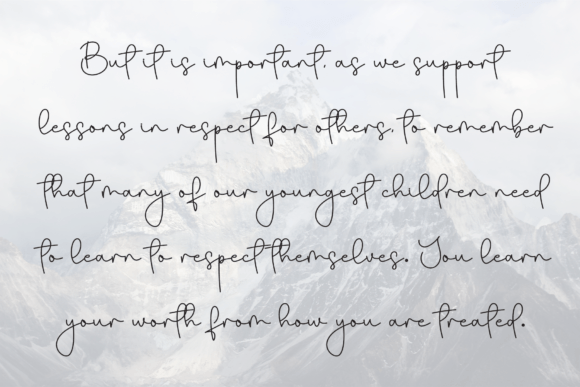 But it is important, as we support
lessons in respect for others, to remember
that many of our youngest children need
to learn to respect themselves. You learn
your worth from how you are treated.